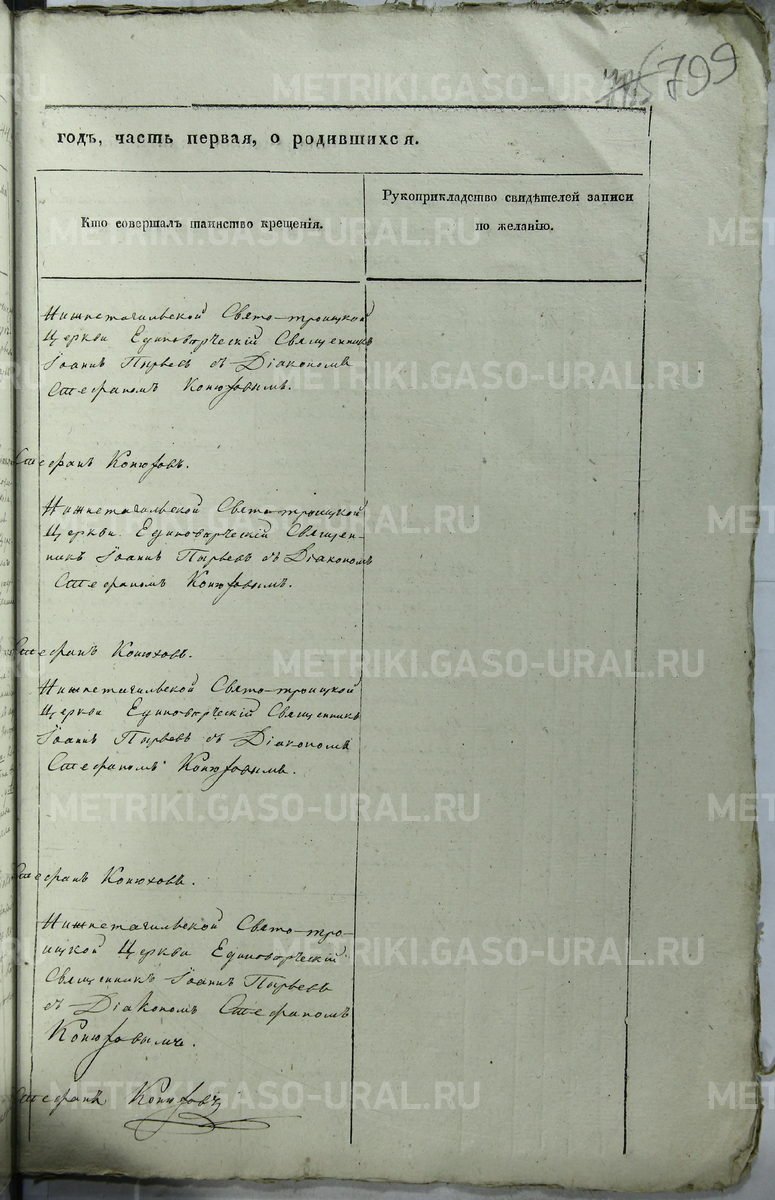 799
годъ, часть первая, о родившихся.
Кто совершалъ таинство крещенія.
Рукоприкладство свидѣтелей записи
по желанію.
Нижнетагильской Свято-троицкой
Церкви Единовѣрческій Священникъ
Іоаннъ Пырьевъ съ Діакономъ
Стефаномъ Конюховымъ.
Стефанъ Конюховъ.
Нижнетагильской Свято-троицкой
Церкви Единовѣрческій Священ-
никъ Іоаннъ Пырьевъ съ Діакономъ
Стефаномъ Конюховымъ.
Стефанъ Конюховъ.
Нижнетагильской Свято-троицкой
Церкви Единовѣрческій Священникъ
Іоаннъ Пырьевъ съ Діакономъ
Стефаномъ Конюховымъ.
Стефанъ Конюховъ.
Нижнетагильской Свято-тро-
ицкой Церкви Единовѣрческій
Священникъ Іоаннъ Пырьевъ
съ Діакономъ Стефаномъ
Конюховымъ.
Стефанъ Конюховъ
METRIKI.GASO-URAL.RU